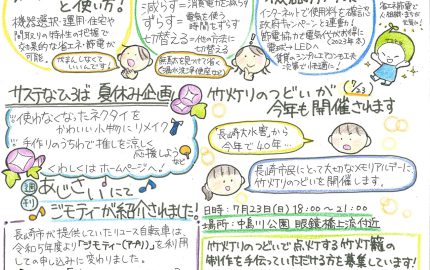 と使い方!
機器選択・運用・住宅や
間取りの特性も把握で
効果的な省エネ・節電が
可能。
がまんしなくて
いいんです!
減らす=消費電力を減らす
ずらす=電気を使う
時間をずらす
切替える=他の方法に
切り替える
無駄を見つけて省く
インターネットで使用料を確認
政府キャンペーンと連動
節電協力で電気代がお得に
電球→LEDへ
(2023年末)
サステなひろば 夏休み企画!
使わなくなったネクタイを
かわいい小物にリメイク
手作りのうちわで推しを涼しく
応援しよう
など
くわしくはホームページへ!
週刊
あじさいにて
ジモティーが紹介されました!
長崎市が提供していたリユース自転車は、
令和5年度より「ジモティー(アプリ)」を利用
しての申し込みに変わりました。
7/23
竹灯りのつどいが
今年も開催されます
「長崎大水害」から
今年で40年…
長崎市民にとって大切なメモリアルデーに、
竹灯りのつどいを開催します。
日時:7月23日(日)18:00~21:00
場所:中島川公園 眼鏡橋上流付近
竹灯りのつどいで点火する竹灯籠の
制作を手伝っていただける方を募集しています!